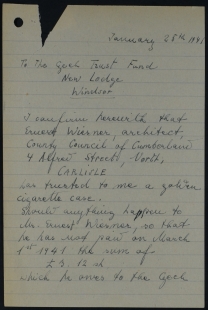 January 25th 1941
To The Czech Trust Fund
New Lodge
Windsor
I confirm herewith that
Ernest Wiesner, architect,
County Council of Cumberland
4 Alfred Street, North,
CARLISLE
has trusted to me a golden
cigarette case.
Should anything happen to
Mr. Ernest Wiesner, so that
he has not paid on March
1st 1941 the sum of
£ 3. 12 sh
which he owes to the Czech